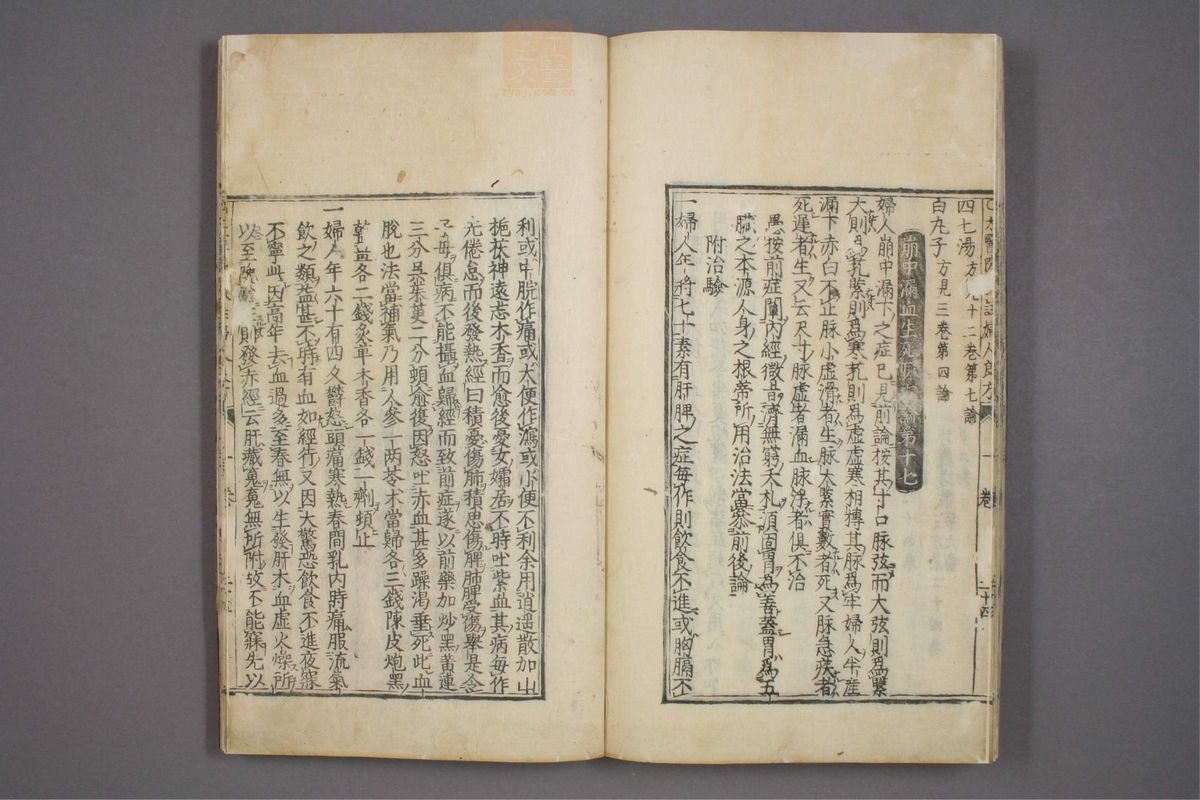 四七湯方見十二卷第七論
白丸子方見三卷第四論
崩中漏血生死脉論第十七
婦人崩中漏下之症已見前論按其寸口脉弦而大弦則爲緊
大則爲芤緊則爲寒芤則爲虛虛寒相搏其脉爲牢婦人半産
漏下赤白不止脉小虛滑者生脉大緊實數者死又脉急疾者
死遲者生又云尺寸脉虛者漏血脉浮者俱不治
愚按前症闡內經微旨濟無窮大札須固胃爲善蓋胃爲五
臟之本源人身之根蒂所用治法當參前後論
附治驗
一婦人年將七十素有肝脾之症每作則飲食不進或胸膈不
利或中脘作痛或大便作瀉或小便不利余用逍遥散加山
梔茯神遠志木香而愈後憂女孀居不時吐紫血其病每作
先倦怠而後發熱經曰積憂傷肺積思傷脾肺脾受傷舉是令
子母俱病不能攝血歸經而致前症遂以前藥加炒黑黄連
三分吴茱萸二分頓愈復因怒吐赤血甚多躁渴垂死此血
脫也法當補氣乃用人參一兩苓术當歸各三錢陳皮炮黑
乾薑各二錢炙草木香各一錢一劑頓止
一婦人年六十有四久鬱怒頭痛寒熱春間乳内時痛服流氣
飲之類益甚不時有血如經行又因大驚恐飲食不進夜寐
不寧此因高年去血過多至春無以生發肝木血虛火燥所
以至陰 則發赤經云肝藏魂魂無所附故不能寐先以